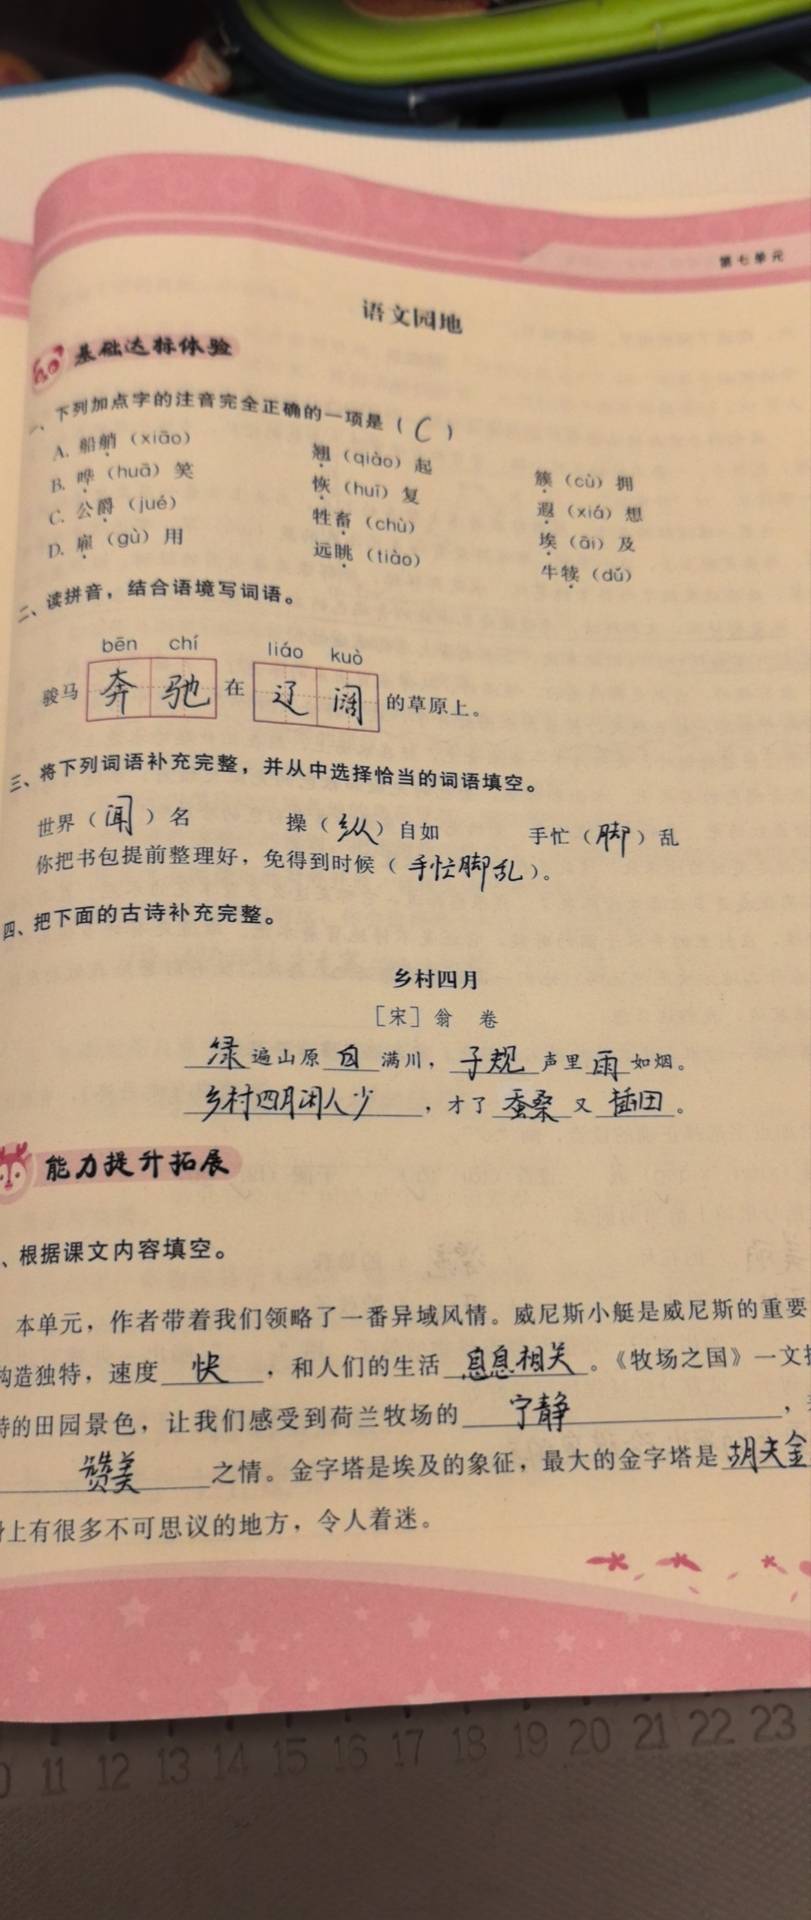 第七单元
语文园地
基础达标体验
一、下列加点字的注音完全正确的一项是（ C ）
A. 船艄（xiāo） 翘（qiào）起 簇（cù）拥
B. 哗（huā）笑 恢（huī）复 遐（xiá）想
C. 公爵（jué） 牲畜（chù） 埃（āi）及
D. 雇（gù）用 远眺（tiào） 牛犊（dǔ）
二、读拼音，结合语境写词语。
bēn chí liáo kuò
骏马 奔驰 在 辽阔 的草原上。
三、将下列词语补充完整，并从中选择恰当的词语填空。
世界（闻）名 操（纵）自如 手忙（脚）乱
你把书包提前整理好，免得到时候（手忙脚乱）。
四、把下面的古诗补充完整。
乡村四月
［宋］翁 卷
绿遍山原白满川，子规声里雨如烟。
乡村四月闲人少，才了蚕桑又插田。
能力提升拓展
、根据课文内容填空。
本单元，作者带着我们领略了一番异域风情。威尼斯小艇是威尼斯的重要
构造独特，速度 快 ，和人们的生活 息息相关 。《牧场之国》一文
特的田园景色，让我们感受到荷兰牧场的 宁静 ，
赞美 之情。金字塔是埃及的象征，最大的金字塔是 胡夫金
身上有很多不可思议的地方，令人着迷。
11 12 13 14 15 16 17 18 19 20 21 22 23